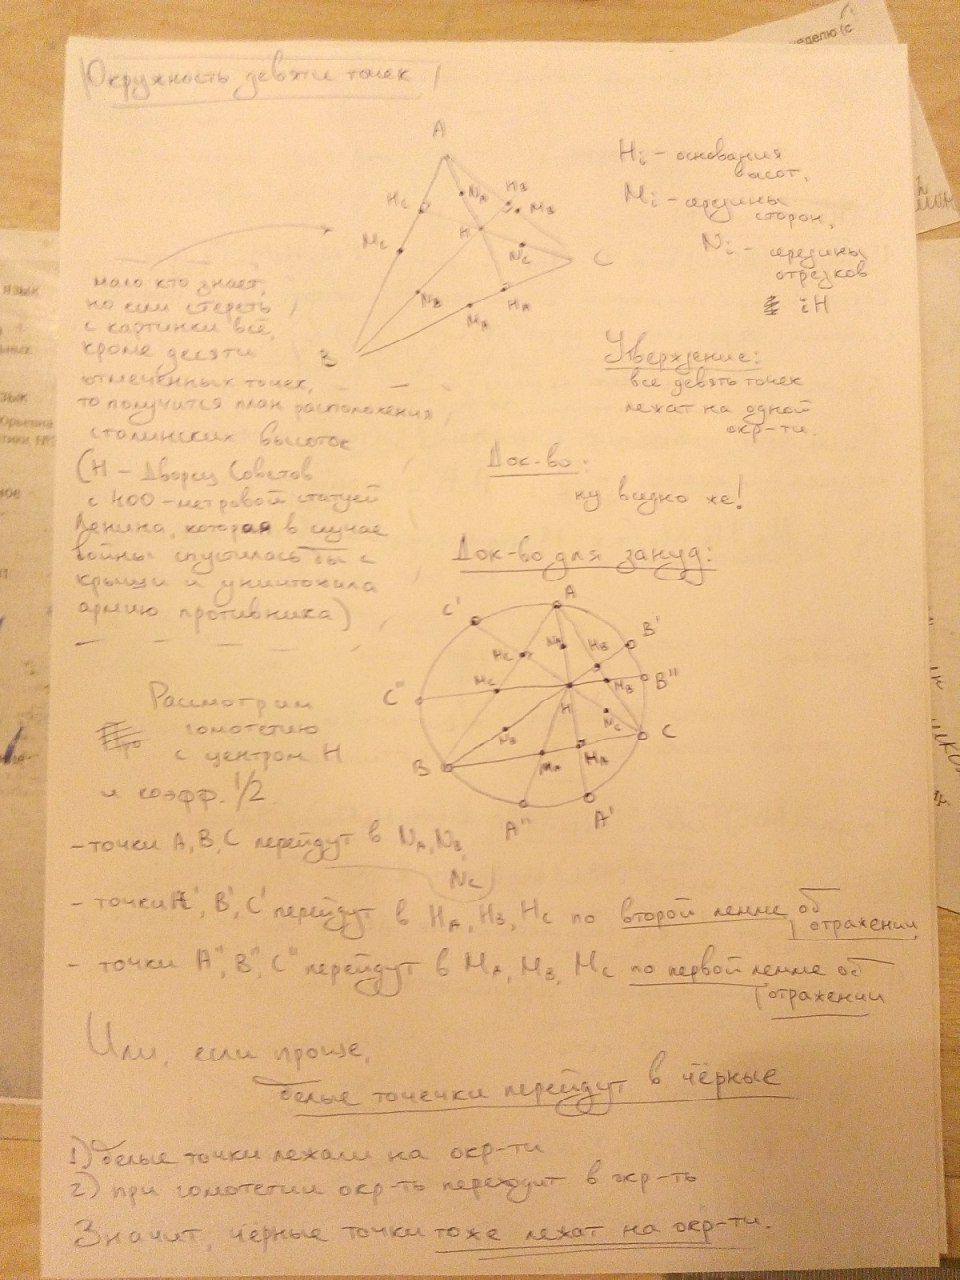 Окружность девяти точек
A
Hᵢ – основания
высот,
Mᵢ – середины
сторон,
Nᵢ – середины
отрезков
iH
Hc
NA
HB
MB
Mc
H
Nc
C
NB
MA
HA
B
мало кто знает,
но если стереть
с картинки всё,
кроме десяти
отмеченных точек,
то получится план расположения
сталинских высоток
(H – Дворец Советов
с 400-метровой статуей
Ленина, которая в случае
войны спустилась бы с
крыши и уничтожила
армию противника)
Утверждение:
все девять точек
лежат на одной
окр-ти.
Док-во:
ну видно же!
Док-во для зануд:
C'
A
B'
Hc
NA
HB
C"
Mc
B"
MB
H
NB
Nc
C
B
MA
HA
A"
A'
Рассмотрим
гомотетию
с центром H
и коэфф. 1/2.
– точки A, B, C перейдут в NA, NB,
Nc
– точки A', B', C' перейдут в HA, HB, Hc по второй лемме об
отражении
– точки A", B", C" перейдут в MA, MB, Mc по первой лемме об
отражении
Или, если проще,
белые точечки перейдут в чёрные
1) белые точки лежали на окр-ти
2) при гомотетии окр-ть переходит в окр-ть
Значит, чёрные точки тоже лежат на окр-ти.
неделю (с
язык